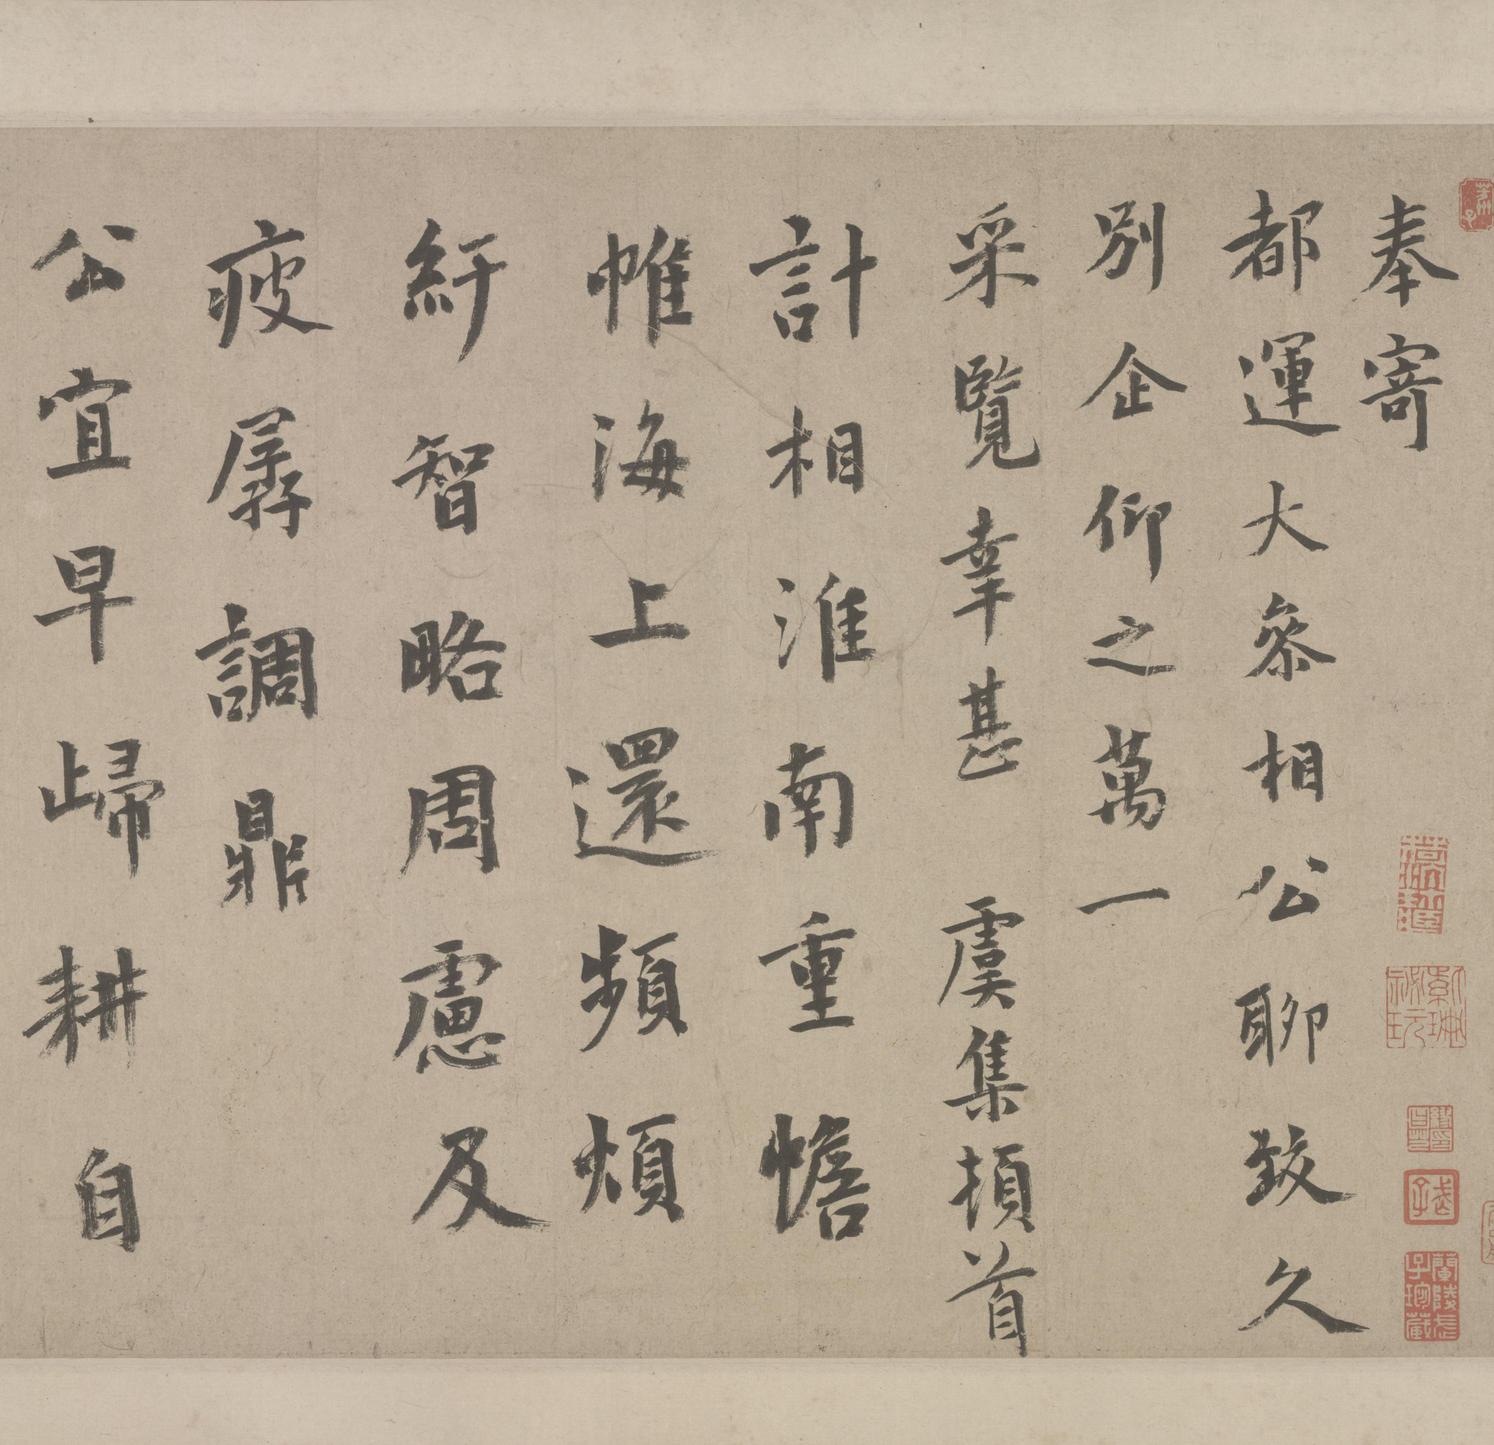 奉寄
都運大參相公聊致久
別企仰之萬一
采覽幸甚 虞集頓首
計相淮南重幨
帷海上還頻煩
紆智略周慮及
疲孱調鼎
公宜早歸耕自